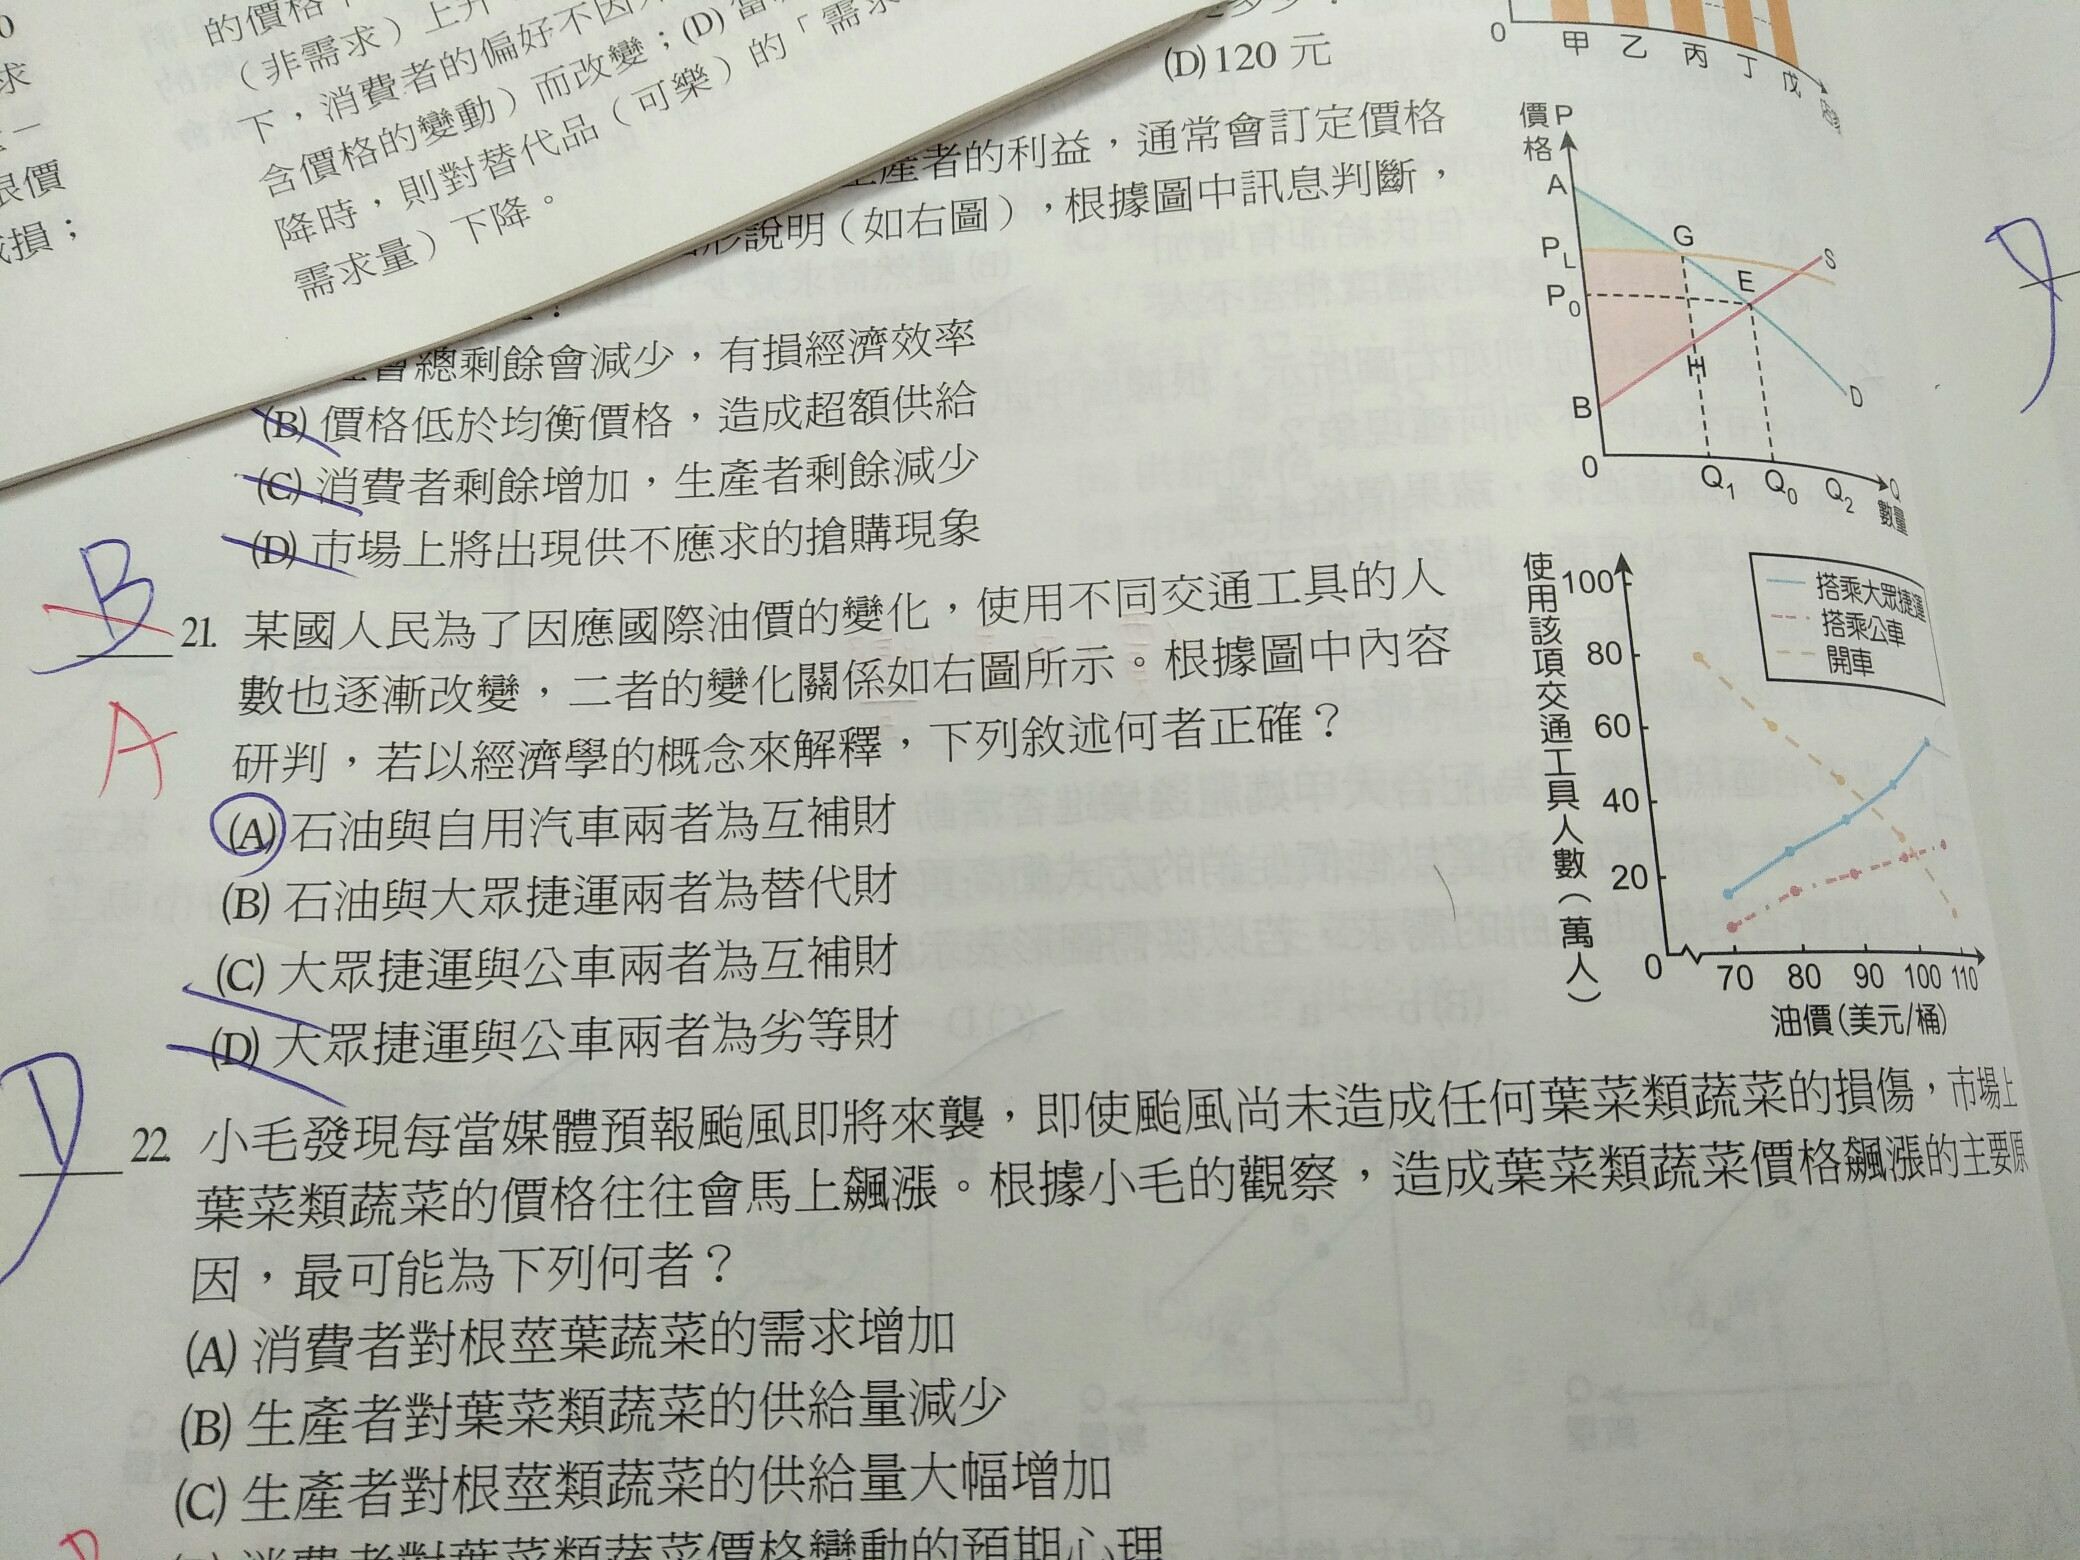 的價格
（非需求）上升
下，消費者的偏好不因
含價格的變動）而改變；(D) 當
降時，則對替代品（可樂）的「需求
需求量）下降。
求
限價
損；
(D) 120 元
生產者的利益，通常會訂定價格
形說明（如右圖），根據圖中訊息判斷，
會總剩餘會減少，有損經濟效率
(B) 價格低於均衡價格，造成超額供給
(C) 消費者剩餘增加，生產者剩餘減少
(D) 市場上將出現供不應求的搶購現象
0 甲 乙 丙 丁 戊
價格 P
A
PL
G
S
P0
E
H
B
D
0 Q1 Q0 Q2 Q
數量
B
A
21. 某國人民為了因應國際油價的變化，使用不同交通工具的人
數也逐漸改變，二者的變化關係如右圖所示。根據圖中內容
研判，若以經濟學的概念來解釋，下列敘述何者正確？
(A) 石油與自用汽車兩者為互補財
(B) 石油與大眾捷運兩者為替代財
(C) 大眾捷運與公車兩者為互補財
(D) 大眾捷運與公車兩者為劣等財
使用該項交通工具人數（萬人）
100
80
60
40
20
0 70 80 90 100 110
油價(美元/桶)
搭乘大眾捷運
搭乘公車
開車
D
22. 小毛發現每當媒體預報颱風即將來襲，即使颱風尚未造成任何葉菜類蔬菜的損傷，市場上
葉菜類蔬菜的價格往往會馬上飆漲。根據小毛的觀察，造成葉菜類蔬菜價格飆漲的主要原
因，最可能為下列何者？
(A) 消費者對根莖葉蔬菜的需求增加
(B) 生產者對葉菜類蔬菜的供給量減少
(C) 生產者對根莖類蔬菜的供給量大幅增加
消費者對葉菜類蔬菜價格變動的預期心理